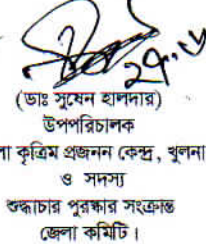 ২৭.৬
(ডাঃ সুষেন হালদার)
উপপরিচালক
লা কৃত্রিম প্রজনন কেন্দ্র, খুলনা
ও সদস্য
শুদ্ধাচার পুরষ্কার সংক্রান্ত
জেলা কমিটি।